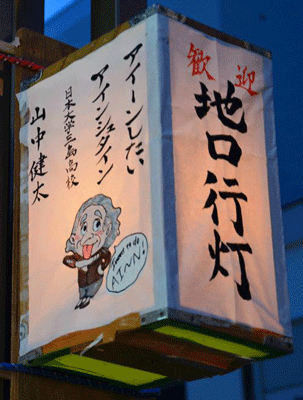 歓迎
地口行灯
アイーンしたい
アインシュタイン
日本大学三島高校
山中健太
I want to do
AIIN!